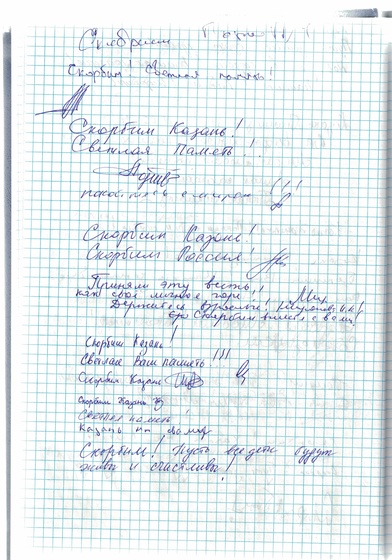 Скорбим
Скорбим! Светлая память!
Скорбим Казань!
Светлая Память!
покойтесь с миром!!!
Скорбим Казань!
Скорбим Россия!
Приняли эту весть,
как своё личное горе.
Держитесь
Скорбим вместе с вами!
Скорбим Казань!
Светлая Вам память!!!
Скорбим Казань
Скорбим Казань
Светлая память!
Казань
Скорбим! Пусть все дети будут
живы и счастливы!